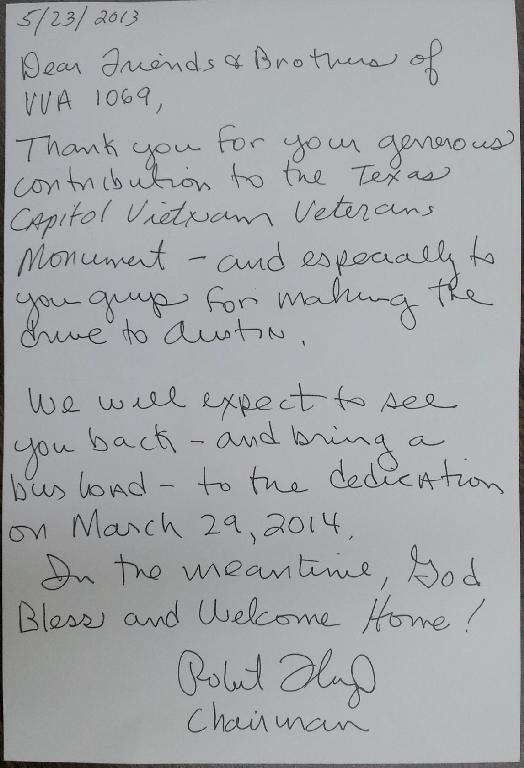 5/23/2013
Dear Friends & Brothers of
VVA 1069,
Thank you for your generous
contribution to the Texas
Capitol Vietnam Veterans
Monument - and especially to
you guys for making the
drive to Austin.
We will expect to see
you back - and bring a
bus load - to the dedication
on March 29, 2014.
In the meantime, God
Bless and Welcome Home!
Robert Floyd
Chairman